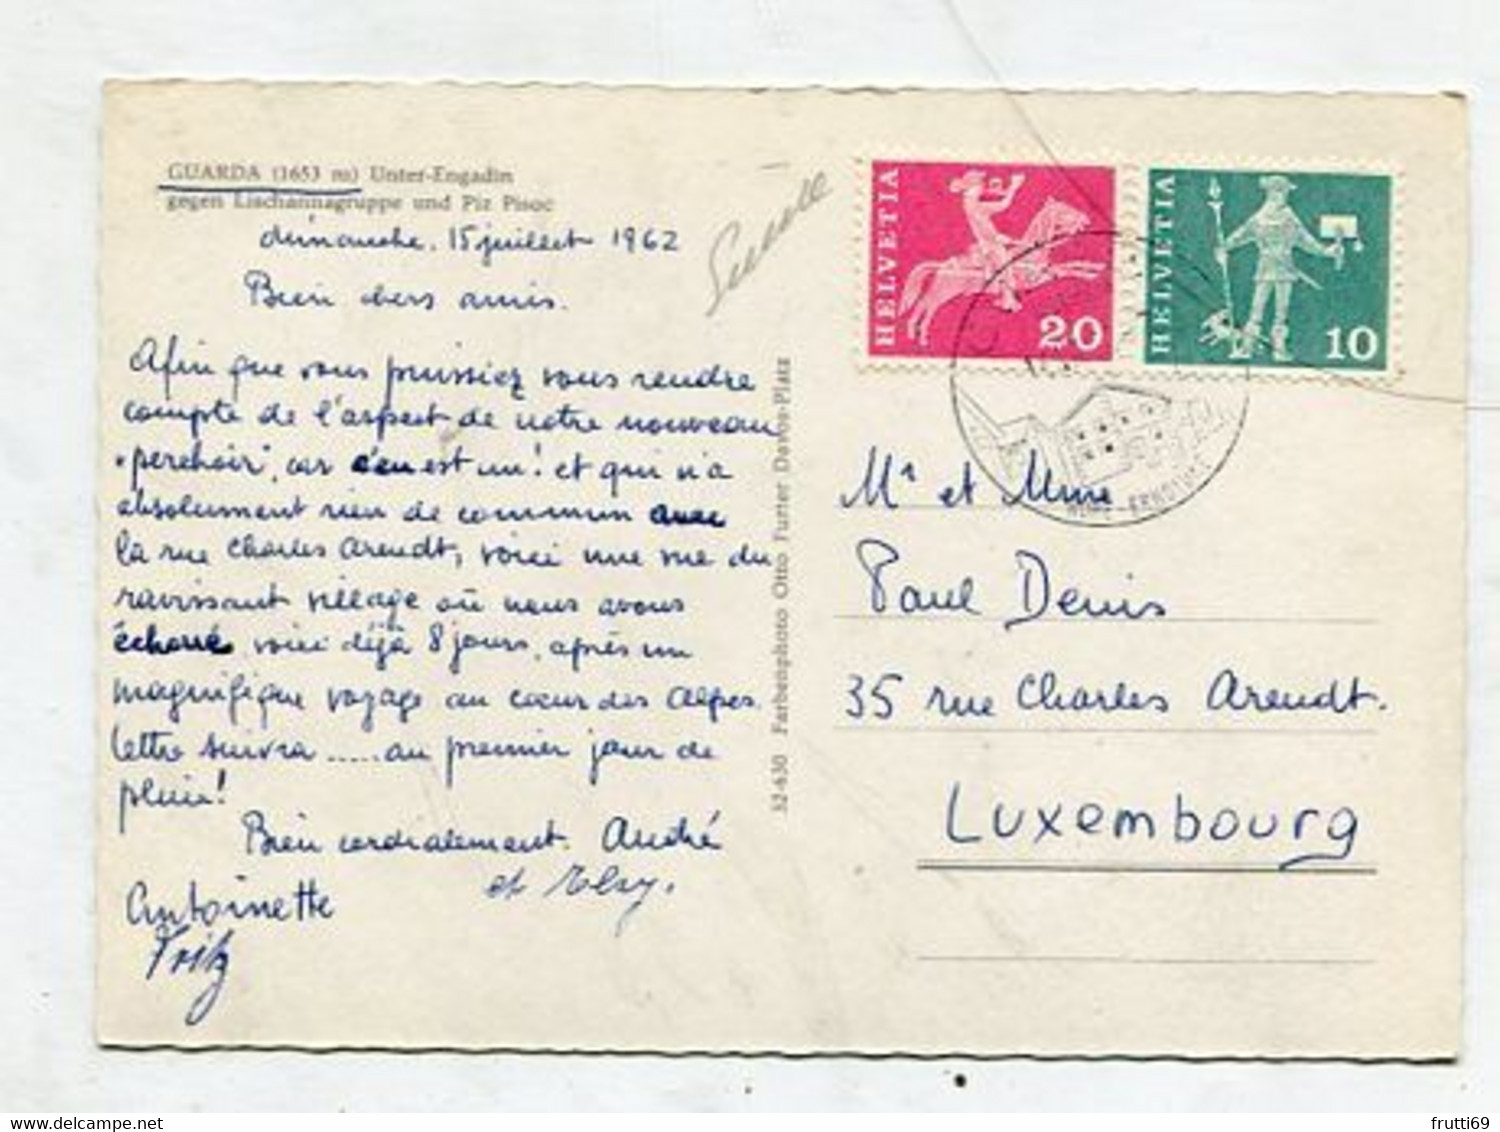 GUARDA (1653 m) Unter-Engadin
gegen Lischannagruppe und Piz Pisoc
dimanche, 15 juillet 1962
Bien chers amis.
Afin que vous puissiez vous rendre
compte de l'aspect de notre nouveau
"perchoir", car c'en est un! et qui n'a
absolument rien de commun avec
la rue Charles Arendt, voici une vue du
ravissant village où nous avons
échoué, voici déjà 8 jours, après un
magnifique voyage au cœur des Alpes.
lettre suivra ..... au premier jour de
pluie!
Bien cordialement. André
et Elsy.
Antoinette
Fritz
52-630 Farbenphoto Otto Furter Davos-Platz
Suisse
HELVETIA 20
HELVETIA 10
Mr et Mme
Paul Denis
35 rue Charles Arendt.
Luxembourg
frutti69